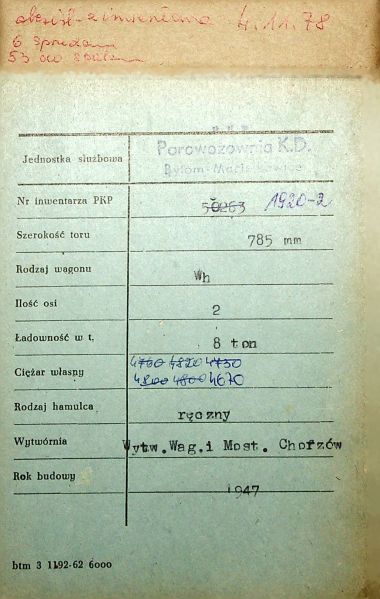 4.11.78
6
53 do
P.K.P.
Jednostka służbowa Parowozownia K.D.
Bytom-
Nr inwentarza PKP 50263 1920-2
Szerokość toru 785 mm
Rodzaj wagonu Wh
Ilość osi 2
Ładowność w t. 8 ton
Ciężar własny 4700 4820 4750
4800 4800 4670
Rodzaj hamulca ręczny
Wytwórnia Wytw.Wag.i Most. Chorzów
Rok budowy 1947
btm 3 1192-62 6000